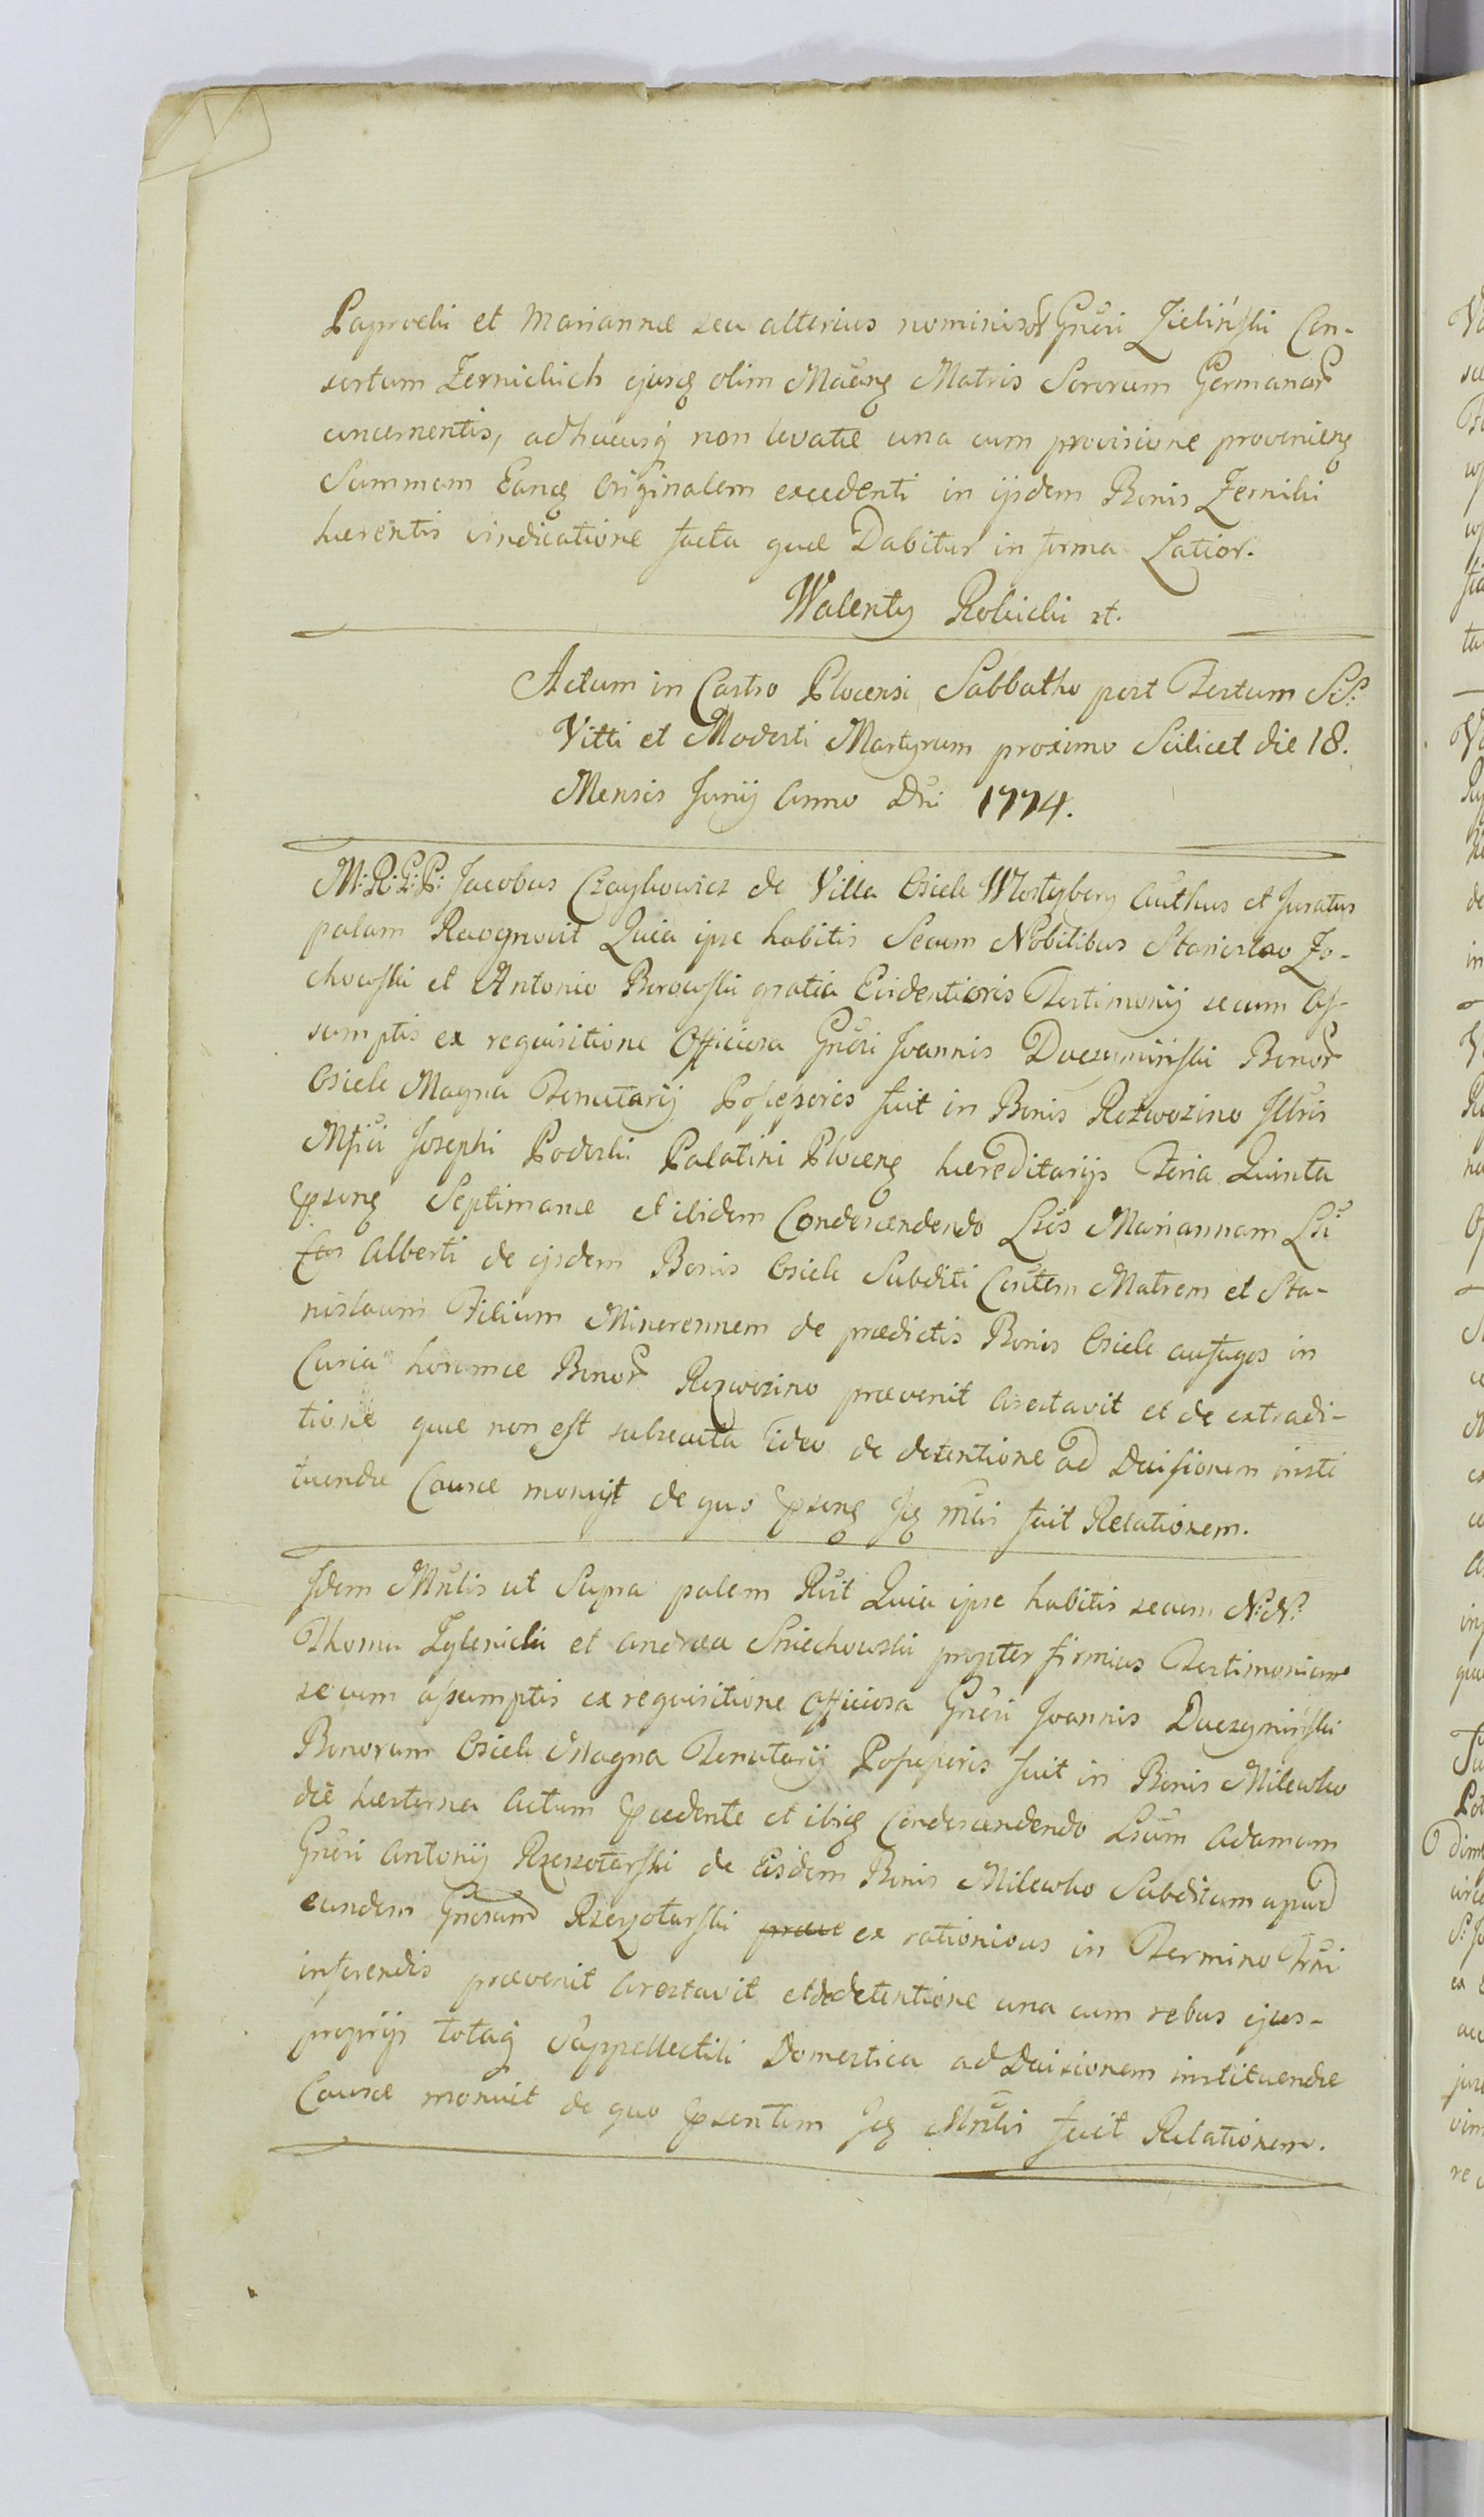 Paprocki et Mariannæ seu alterius nominis Gnĕri Zieliński Con-
sortum Zernickich ejusq olim Matris Sororum Germanar
concernentis, adhucusq non levatæ una cum provisione provenienē
Summam Eanq Originalem excedenti in ijsdem Bonis Zerniki
hærentis vindicatione facta quæ Dabitur in forma Latior.
Walenty Robicki
Actum in Castro Plocensi Sabbatho post Festum S:S:
Vitti et Modesti Martyrum proximo Scilicet die 18.
Mensis Junij Anno Dni 1774.
M: R: G: P: Jacobus Czaykowicz de Villa Osiek Wlostybory Authus et Juratus
palam Recognovit Quia ipse habitis Secum Nobilibus Stanislao Zo-
chowski et Antonio Borowski gratia Evidentioris Testimonij secum As-
sumptis ex requisitione Officiosa Gnĕri Joannis Duczymiński Bonor
Osiek Magna Tenutarij Possessoris fuit in Bonis Rozwozino Illris
Mfici Josephi Podoski Palatini Plocenē hæreditarijs Feria Quinta
Septimanæ et ibidem Condescendendo Lbs Mariannam
Alberti de ijsdem Bonis Osiek Subditi Matrem et Sta-
nislaum Filium Minorennem de prædictis Bonis Osiek aufugos in
Curia horumce Bonor Rozwozino prævenit Arestavit et de extradi-
tione quæ non est subsecuta ideo de detentione ad Decisionem insti
tuendæ Causæ monuit de quo Jq Mlis fecit Relationem.
Idem Mnlis ut Supra palam Rĕit Quia ipse habitis secum N: N:
Thoma Zglenicki et Andrea Sniechowski propter firmius Testimonium
secum assumptis ex requisitione officiosa Gnĕri Joannis Duczymiński
Bonorum Osiek Magna Tenutarij Possessoris fuit in Bonis Milewko
die hesterna Actum præcedente et ibiq Condescendendo Adamum
Gnĕri Antonij Rzeszotarski de Eisdem Bonis Milewko Subditum apud
eundem Gnrsum Rzeszotarski ex rationibus in Termino
inferendis prævenit Arestavit et de detentione una cum rebus ejus-
proprijs totaq Suppellectili Domestica ad Decisionem instituendæ
Causæ monuit de quo præsentem Jq Mnlis fecit Relationem.